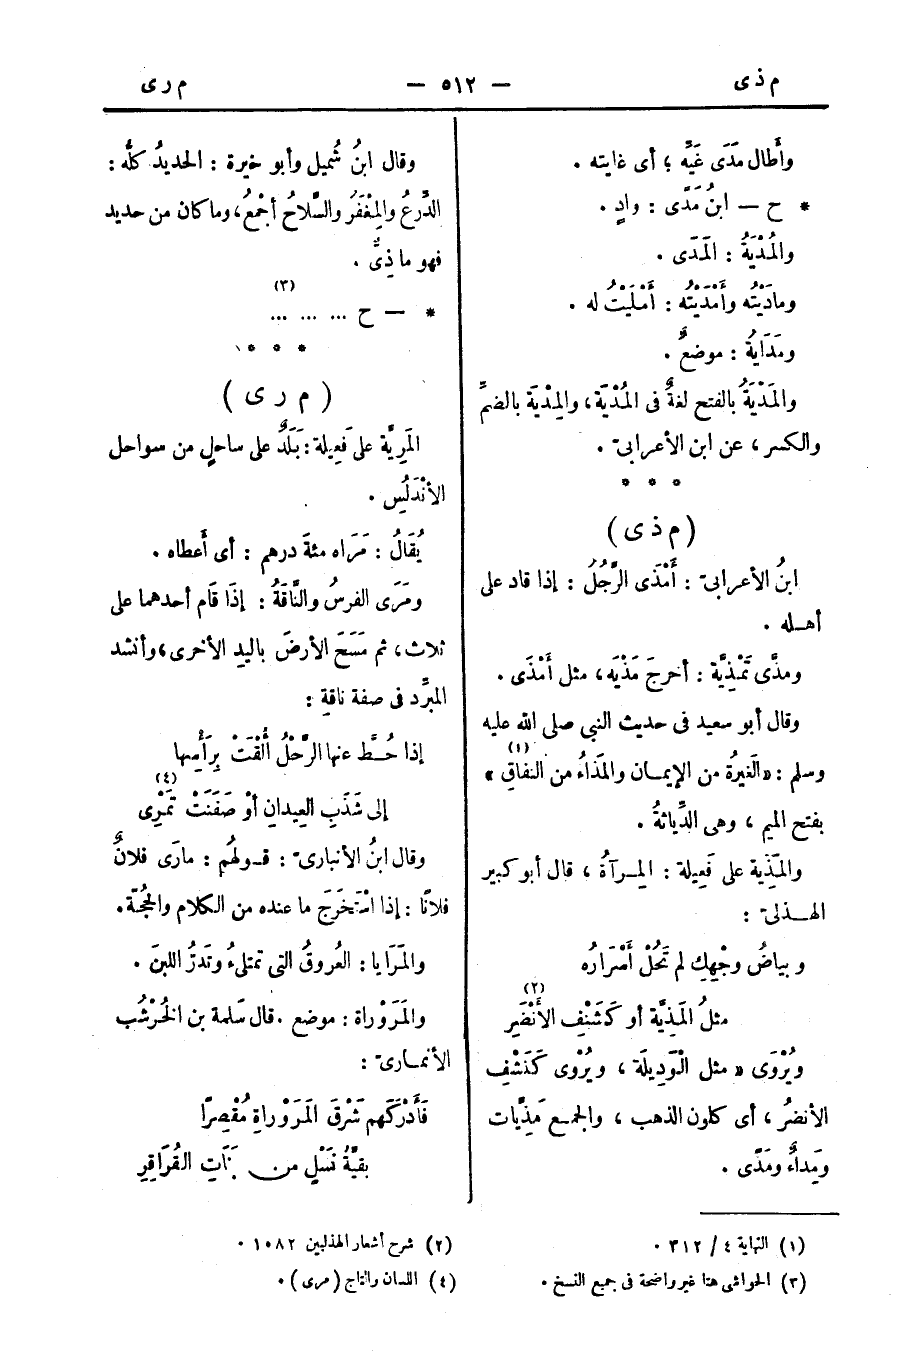 م ذى
— ٥١٢ —
م رى
وأَطال مَدَى غَيِّه ؛ أى غايته .
* ح — ابنُ مَدًى : وادٍ .
والمُدْيَةُ : المَدَى .
ومادَيْتُه وأَمْدَيْتُه : أَمْلَيْتُ له .
ومَدَايَةُ : موضعٌ .
والمَدْيَةُ بالفتح لغةٌ فى المُدْيَة، والمِدْيَة بالضمِّ
والكسر ، عن ابن الأعرابىّ .
* * *
(م ذى)
ابنُ الأعرابىّ : أَمْذَى الرَّجُلُ : إذا قاد على
أهله .
ومذَّى تَمْذِيَّة : أخرجَ مَذْيَه، مثل أَمْذَى .
وقال أبو سعيد فى حديث النبي صلى الله عليه
وسلم : «الغَيرةُ من الإيمان والمَذَاءُ من النفاقِ (١) »
بفتح الميم ، وهى الدِّياثةُ .
والمَذِّية على فَعِيلة : المرآةُ ، قال أبو كبير
الهذلىّ :
و بياضُ وجْهِكِ لم تَحُلْ أَسْرَارُه
مثلُ المَذِيَّة أو كَشَنْفِ الأَنْضَرِ (٢)
ويُرْوَى « مثل الْوَذِيلَة ، ويُرْوى كَنَشْفِ
الأنضرُ ، أى كلون الذهب ، والجمع مَذِيَّات
ومِداءٌ ومَدًى .
وقال ابنُ شُميل وأبو خيرة : الحديدُ كلُّه :
الدِّرعُ والمِغْفَرُ والسِّلاحُ أجْمعُ، وما كان من حديد
فهو ما ذِىٌّ .
* — ح ... ... ... (٣)
* * *
( م ر ى )
المَرِيَّة على فَعِيلة : بَلَدٌ على ساحلٍ من سواحل
الأنْدَلُس .
يُقَالُ : مَرَاه مئةَ درهم : أى أَعطاه .
ومَرَى الفرسُ والنَّاقَةُ : إذَا قَام أحدهما على
ثلاث، ثم مَسَحَ الأرضَ باليدِ الأخرى، وأنشد
المبرِّد فى صفة ناقةِ :
إذا حُطَّ عنها الرَّحْلُ أَلْقَتْ بِرَأْسِها
إلى شَذَبِ العِيدانِ أوْ صَفَنَتْ تَمْرِى (٤)
وقال ابنُ الأنبارىّ : قولهُم : مارَى فلانٌ
فلانًا : إذا اسْتَخرَجَ ما عنده من الكلام والحجُّة.
والمَرَايا : العُروقُ التى تمتلىءُ وتَدرُّ اللبنَ .
والمَرَوْراة : موضع . قال سَلمة بن الخُرْشُب
الأنمارىّ :
فَأَدْرَكَهم شَرْقَ المَرَوْراةِ مُقْصِرًا
بقيَّةُ نَسْلٍ من بَنَاتِ القُرَاقِرِ
(١) النهاية ٤ / ٣١٢ .
(٢) شرح أشعار الهذليين ١٠٨٢ .
(٣) الحواشى هنا غير واضحة فى جميع النسخ .
(٤) اللسان والتاج (مرى) .